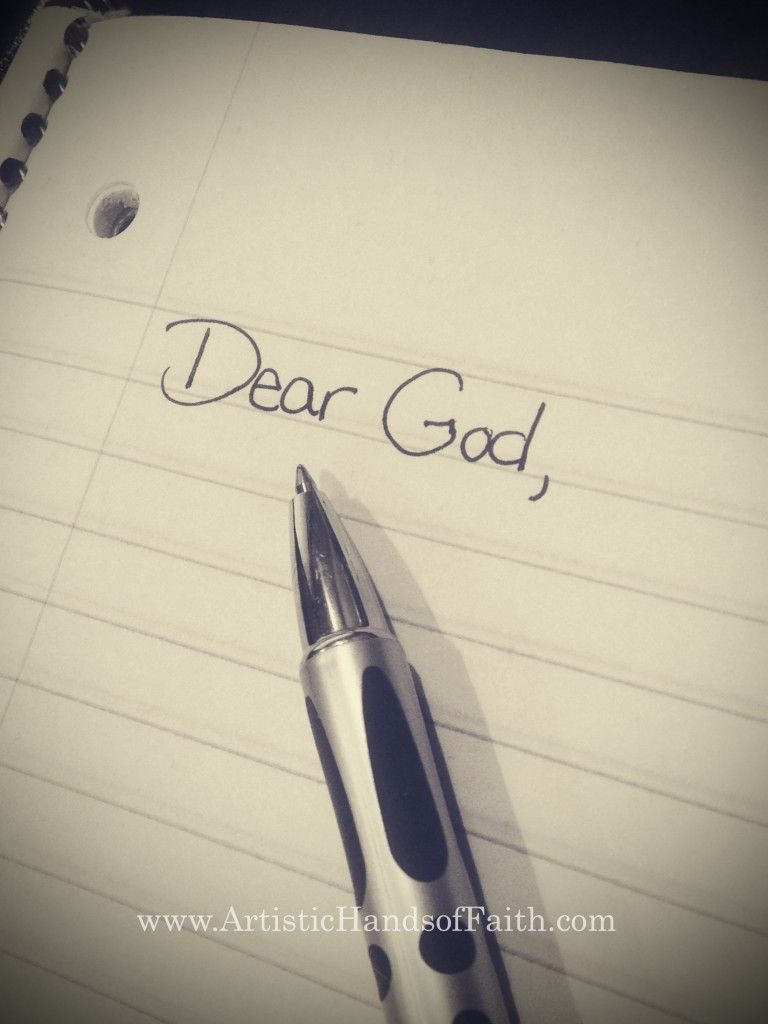 Dear God,
www.ArtisticHandsofFaith.com